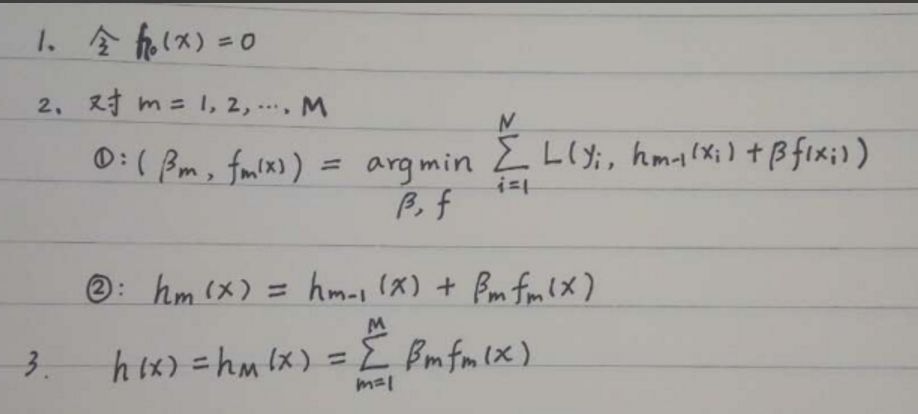 1. 令 h₀(x) = 0
2. 对 m = 1, 2, ..., M
①: (βm, fm(x)) = argmin_{β, f} ∑_{i=1}^{N} L(yi, hm-1(xi) + βf(xi))
②: hm(x) = hm-1(x) + βm fm(x)
3. h(x) = hM(x) = ∑_{m=1}^{M} βm fm(x)